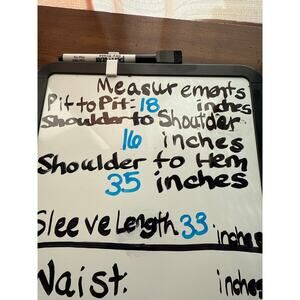 Measurements
Pit to Pit: 18 inches
Shoulder to Shoulder
16 inches
Shoulder to Hem
35 inches
Sleeve Length 33 inches
Waist. inches